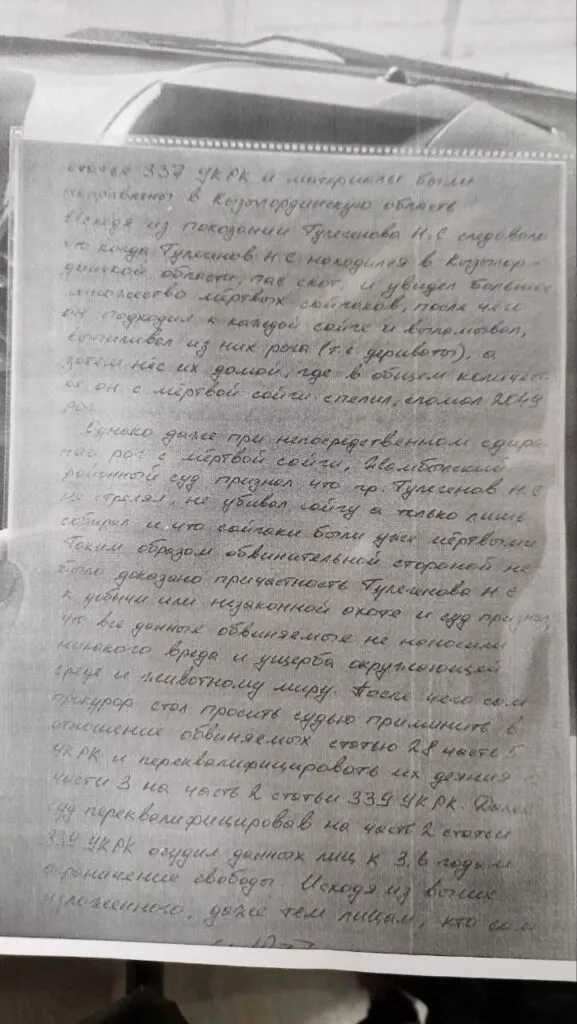 статье 337 УКРК и материалы были
направлены в Кызылординскую область
Исходя из показаний Тулегенова Н.С следовало
что когда Тулегенов Н.С находился в Кызылор-
динской области, пас скот, и увидел большое
множество мёртвых сайгаков, после чего
он подходил к каждой сайге и выламывал,
выпиливал из них рога (т.е дериваты), а
затем нёс их домой, где в общем количест-
ве он с мёртвой сайги спелил, сломал 2044
рог.
Однако даже при непосредственном сдира-
нае рог с мёртвой сайги,
районный суд признал что гр. Тулегенов Н.С
не стрелял, не убивал сайгу а только лишь
собирал и что сайгаки были уже мёртвыми
Таким образом обвинительной стороной не
было доказано причастность Тулегенова Н.С
к добычи или незаконной охоте и суд признал,
что все данные обвиняемые не наносили
никакого вреда и ущерба окружающей
среде и животному миру. После чего сам
прокурор стал просить судью приминить в
отношение обвиняемых статью 28 часть 5
УКРК и переквалифицировать их деяния с
части 3 на часть 2 статьи 339 УКРК. Далее
суд переквалифицировав на часть 2 статьи
339 УКРК осудил данных лиц к 3,6 годам
ограничение свободы. Исходя из выше
изложенного, даже тем лицам, кто сам